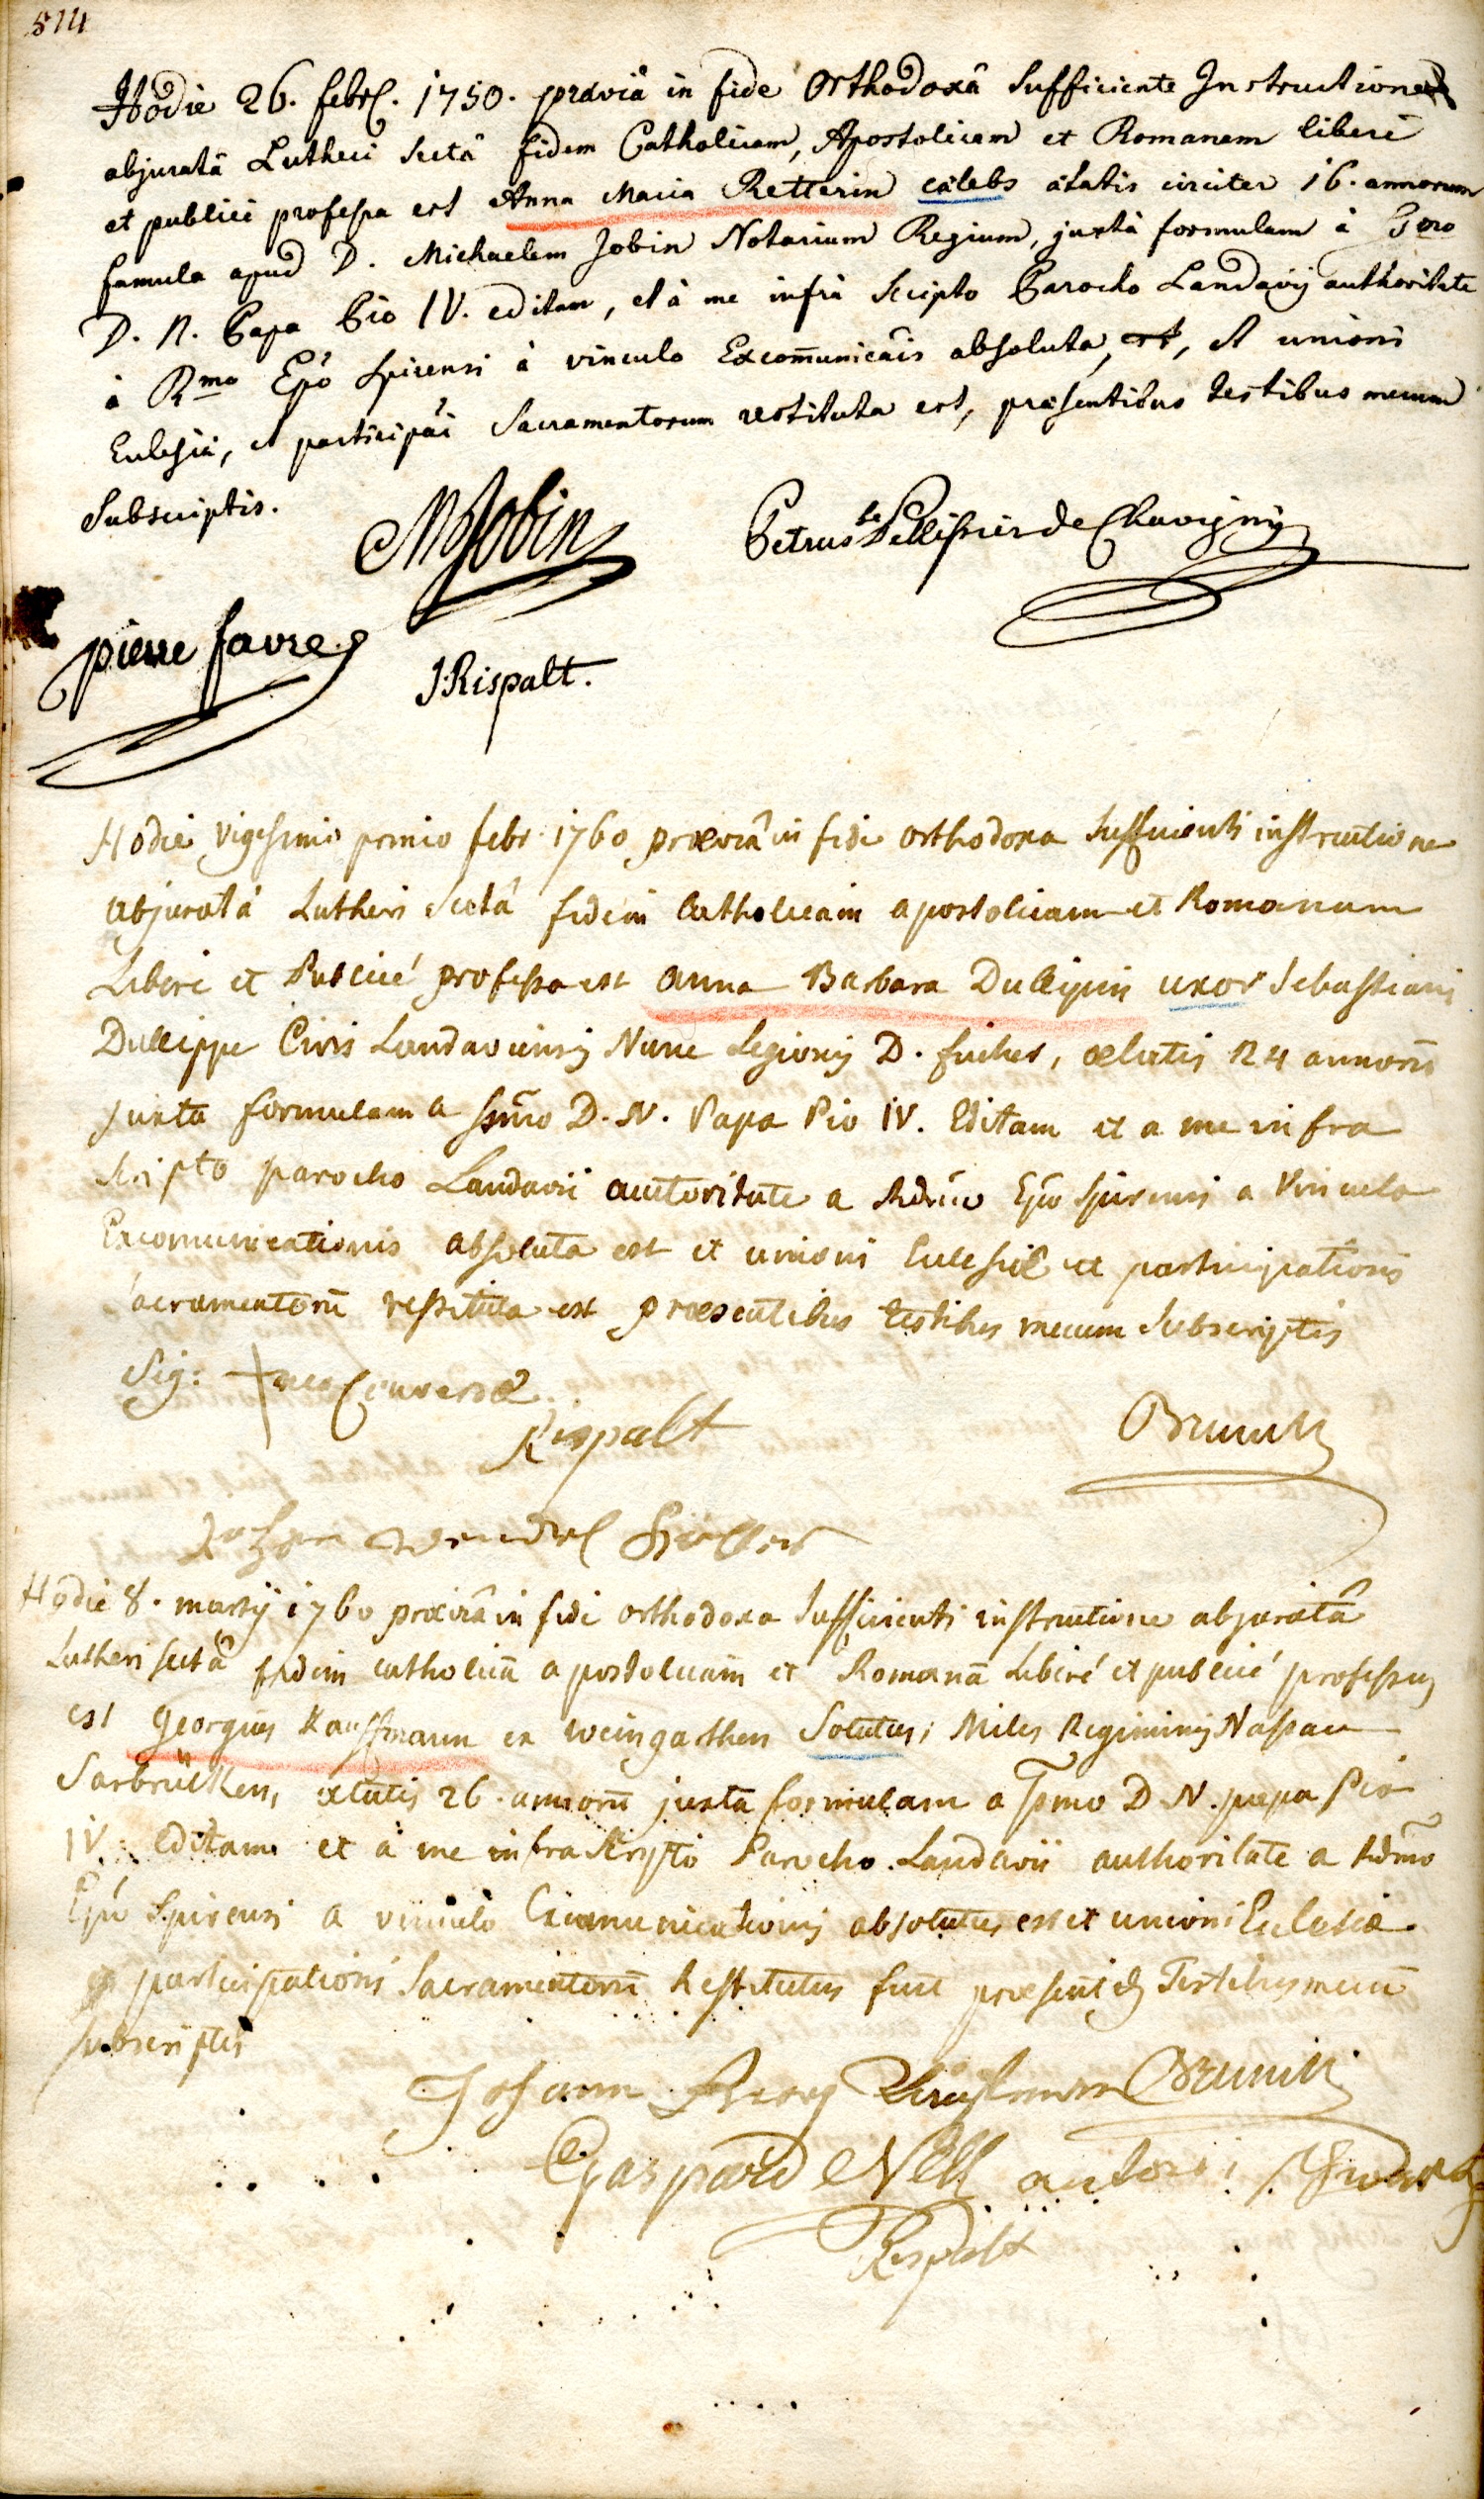 514
Hodie 26. febr. 1750. praeviâ in fide Orthodoxâ Sufficiente Instructione
abjuratâ Lutheri Sectâ fidem Catholicam, Apostolicam et Romanam liberè
et publicè professa est Anna Maria Retterin caelebs aetatis circiter 16. annorum
famula apud D. Michaelem Jobin Notarium Regium, juxtà formulam à
D. N. Papa Pio IV. editam, et à me infrà Scripto Parocho Landavij authoritate
à Rmo Epô Spirensi à vinculo Excom̄unicâis absoluta, et unioni
Eclesiae, et participâi Sacramentorum restituta est, praesentibus testibus mecum
Subscriptis.
MJobin
Petrus Le Pellissier de Chavigny
pierre favre
J. Rispalt.
Hodie vigesimo primo febr. 1760 praeviâ in fide orthodoxa Sufficienti instructione
abjuratâ Lutheri Sectâ fidem Catholicam apostolicam et Romanam
Libere et Publicè professa est anna Barbara Dullipin uxor Sebastiani
Dullippe Civis Landaviensis Nunc Legionis D. , aetatis 24 annorū
juxta formulam a Ssmo D. N. Papa Pio IV. Editam et a me infra
scripto parocho Landavii autoritate a Rdmo Epo Spirensi a Vinculo
Excomunicationis absoluta est et unioni Eclesiae et participationis
Sacramentorū restituta est praesentibus testibus mecum Subscriptis
Sig: + neo Conversae
Rispalt
Hodie 8. martij 1760 praeviâ in fide orthodoxa Sufficienti instructione abjuratâ
Lutheri sectâ fidem catholicā apostolicam et Romanā Liberè et publicè professus
est Georgius Kauffmann ex weingarthen Solutus; Miles Regiminis Nassau
Sarbrücken, aetatis 26. annorū juxta formulam a Ssmo D. N. papa Pio
IV. Editam et à me infra Scripto Parocho Landavii authoritate a Rdmo
Epo Spirensi a vinculo Excomunicationis absolutus est et unioni Eclesiae
participationi Sacramentorū Restitutus fuit praesentib Testibus mecū
subscriptis
Johann Georg
Gaspard Nell
Rispalt